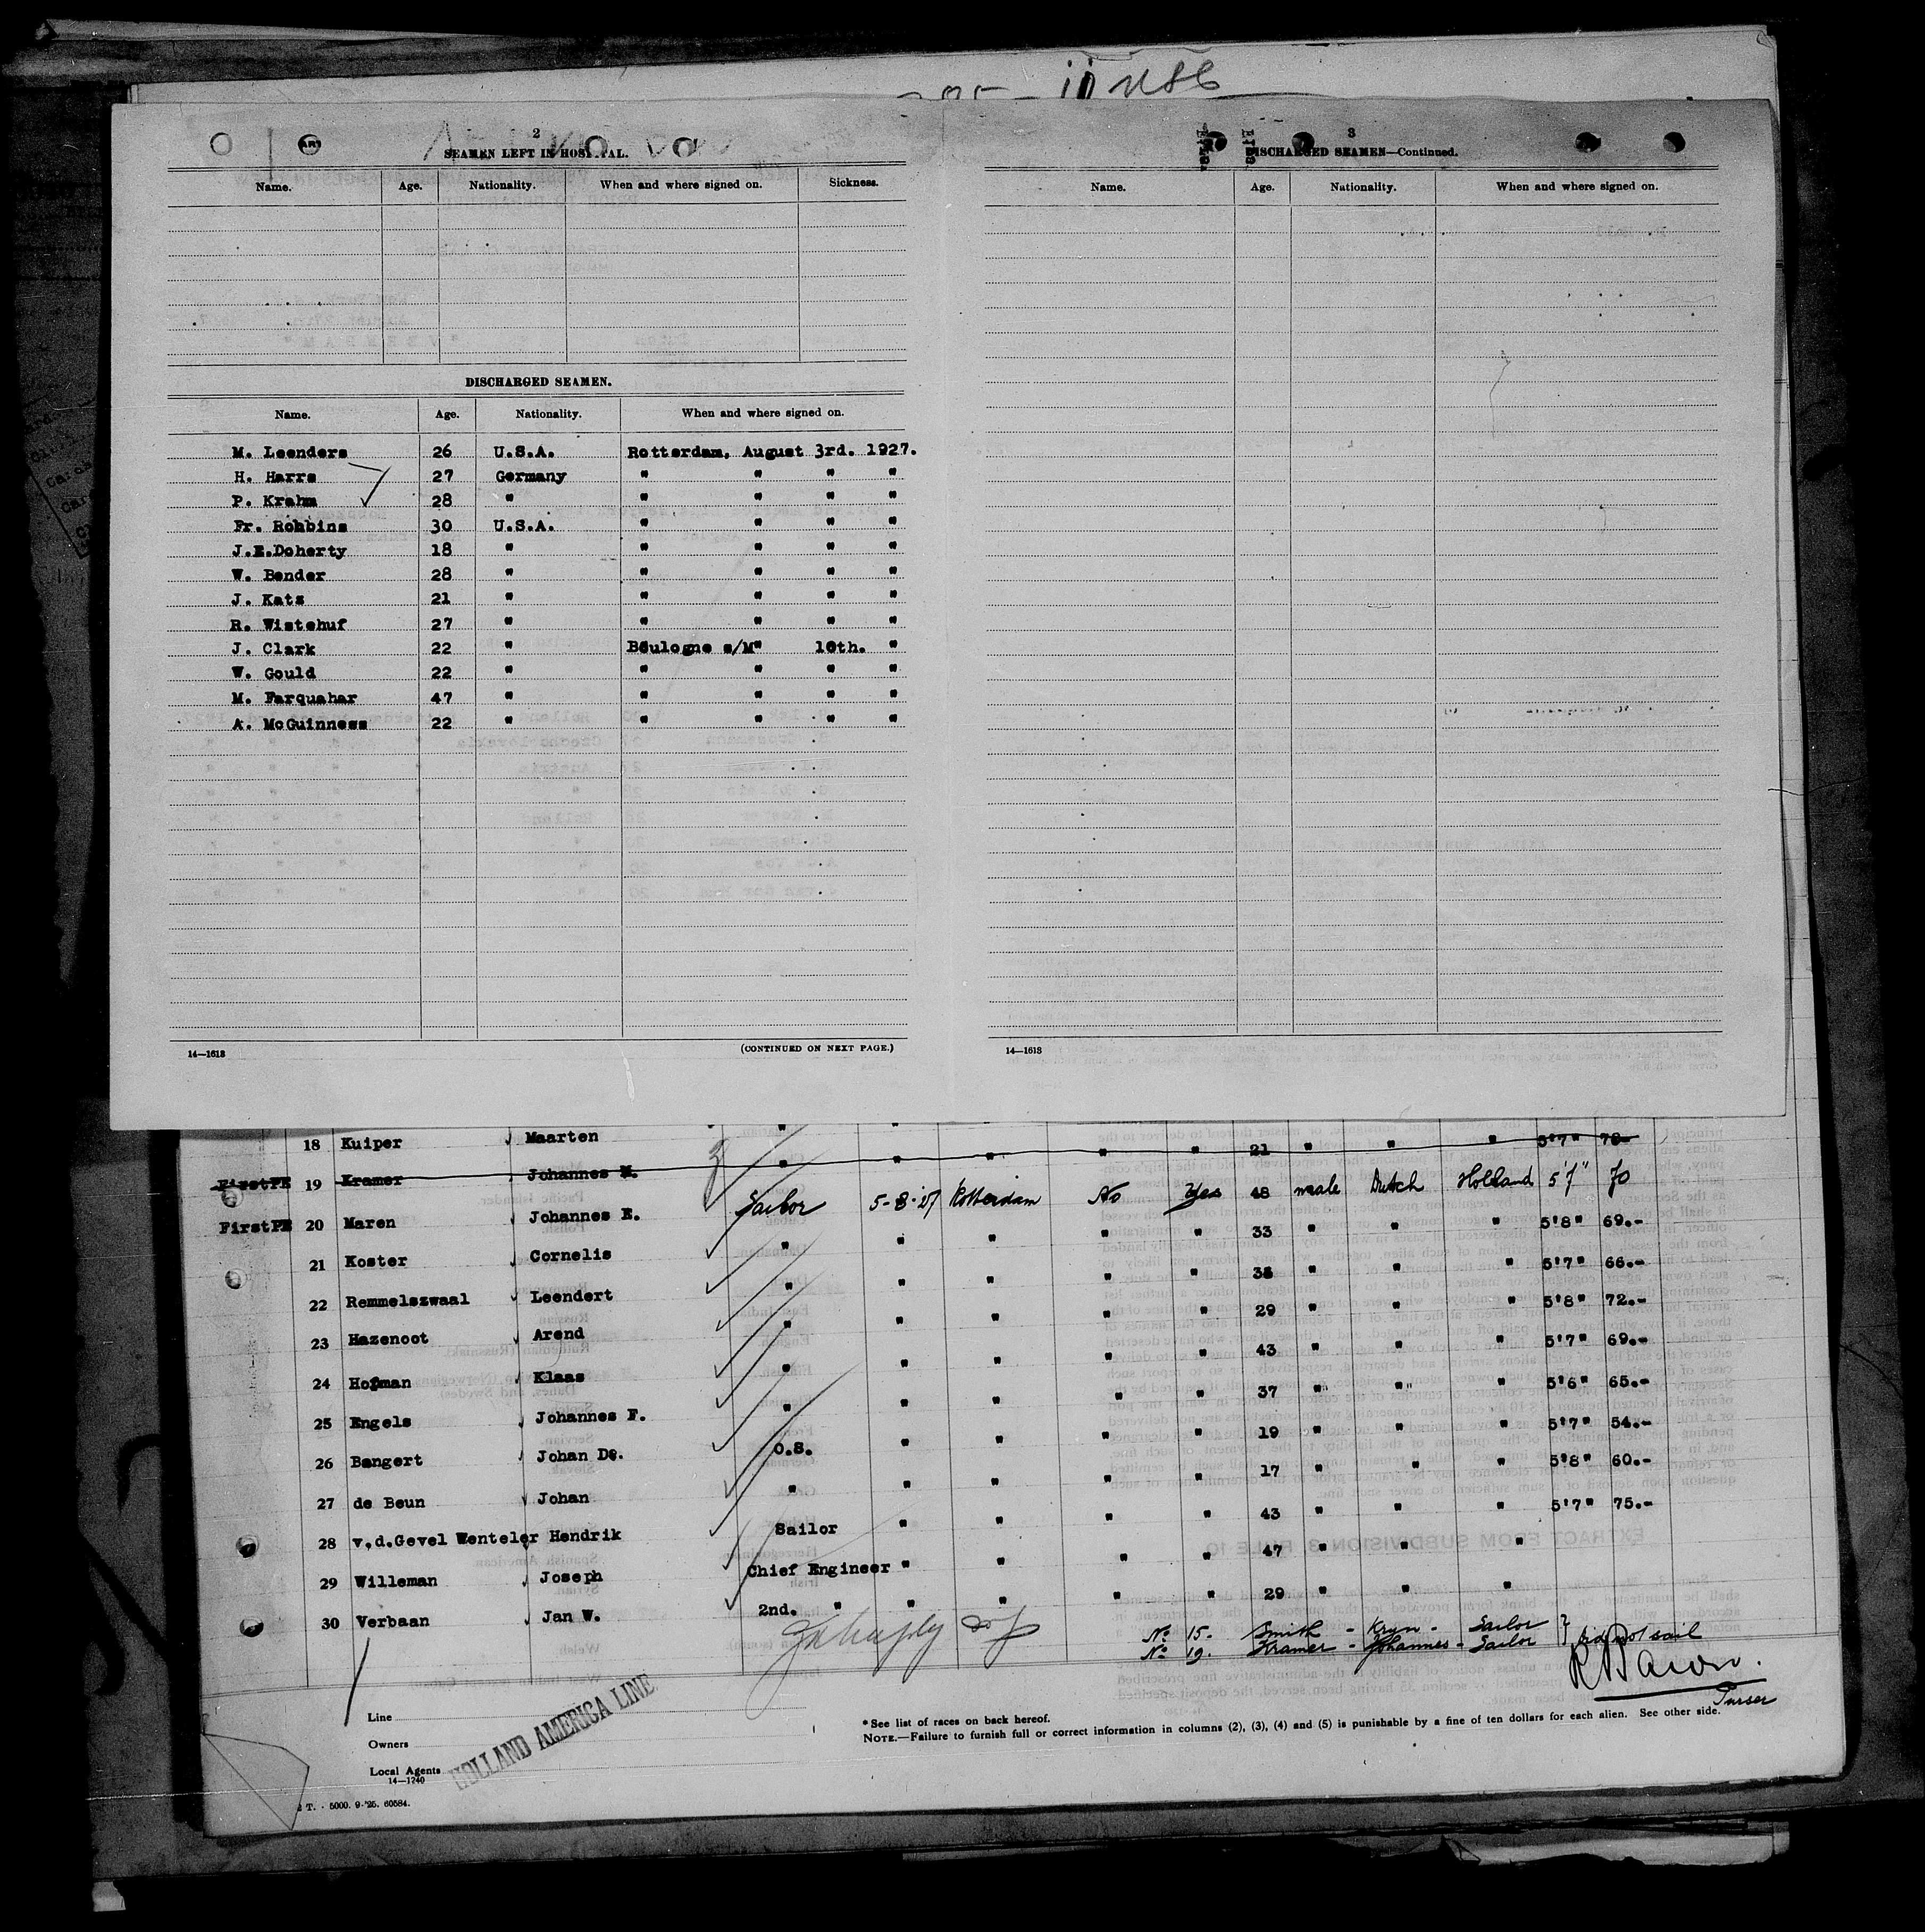 2
SEAMEN LEFT IN HOSPITAL.
Name. Age. Nationality. When and where signed on. Sickness.
DISCHARGED SEAMEN.
Name. Age. Nationality. When and where signed on.
M. Leenders 26 U.S.A. Rotterdam, August 3rd. 1927.
H. Harrs 27 Germany " " " "
P. Krahm 28 " " " " "
Fr. Robbins 30 U.S.A. " " " "
J.E.Doherty 18 " " " " "
W. Bender 28 " " " " "
J. Katz 21 " " " " "
R. Wistehuf 27 " " " " "
J. Clark 22 " Boulogne s/M" 10th. "
W. Gould 22 " " " " "
M. Farquahar 47 " " " " "
A. McGuinness 22 " " " " "
14—1613 (CONTINUED ON NEXT PAGE.)
3
DISCHARGED SEAMEN—Continued.
Name. Age. Nationality. When and where signed on.
14—1613
18 Kuiper Maarten " " " " " 21 " " " 5'7" 70-
FirstPE 19 Kramer Johannes M.
FirstPE 20 Maren Johannes E. Sailor 5-8-27 Rotterdam No Yes 48 male Dutch Holland 5'7" 70
21 Koster Cornelis " " " " " 33 " " " 5'8" 69.-
22 Remmelszwaal Leendert " " " " " 38 " " " 5'7" 66.-
23 Hazenoot Arend " " " " " 29 " " " 5'8" 72.-
24 Hofman Klaas " " " " " 43 " " " 5'7" 69.-
25 Engels Johannes F. " " " " " 37 " " " 5'6" 65.-
26 Bangert Johan Dc. O.S. " " " " 19 " " " 5'7" 54.-
27 de Beun Johan " " " " " 17 " " " 5'8" 60.-
28 v.d.Gevel Wenteler Hendrik Sailor " " " " 43 " " " 5'7" 75.-
29 Willeman Joseph Chief Engineer " " " " 47 " " "
30 Verbaan Jan W. 2nd. " " " " " 29 " " "
No 15. Smith - Kryn - Sailor } did not sail
No 19. Kramer - Johannes - Sailor
Purser
Line
Owners
Local Agents
HOLLAND AMERICA LINE.
14—1240
T. - 5000. 9-'25. 60584.
*See list of races on back hereof.
NOTE.—Failure to furnish full or correct information in columns (2), (3), (4) and (5) is punishable by a fine of ten dollars for each alien. See other side.